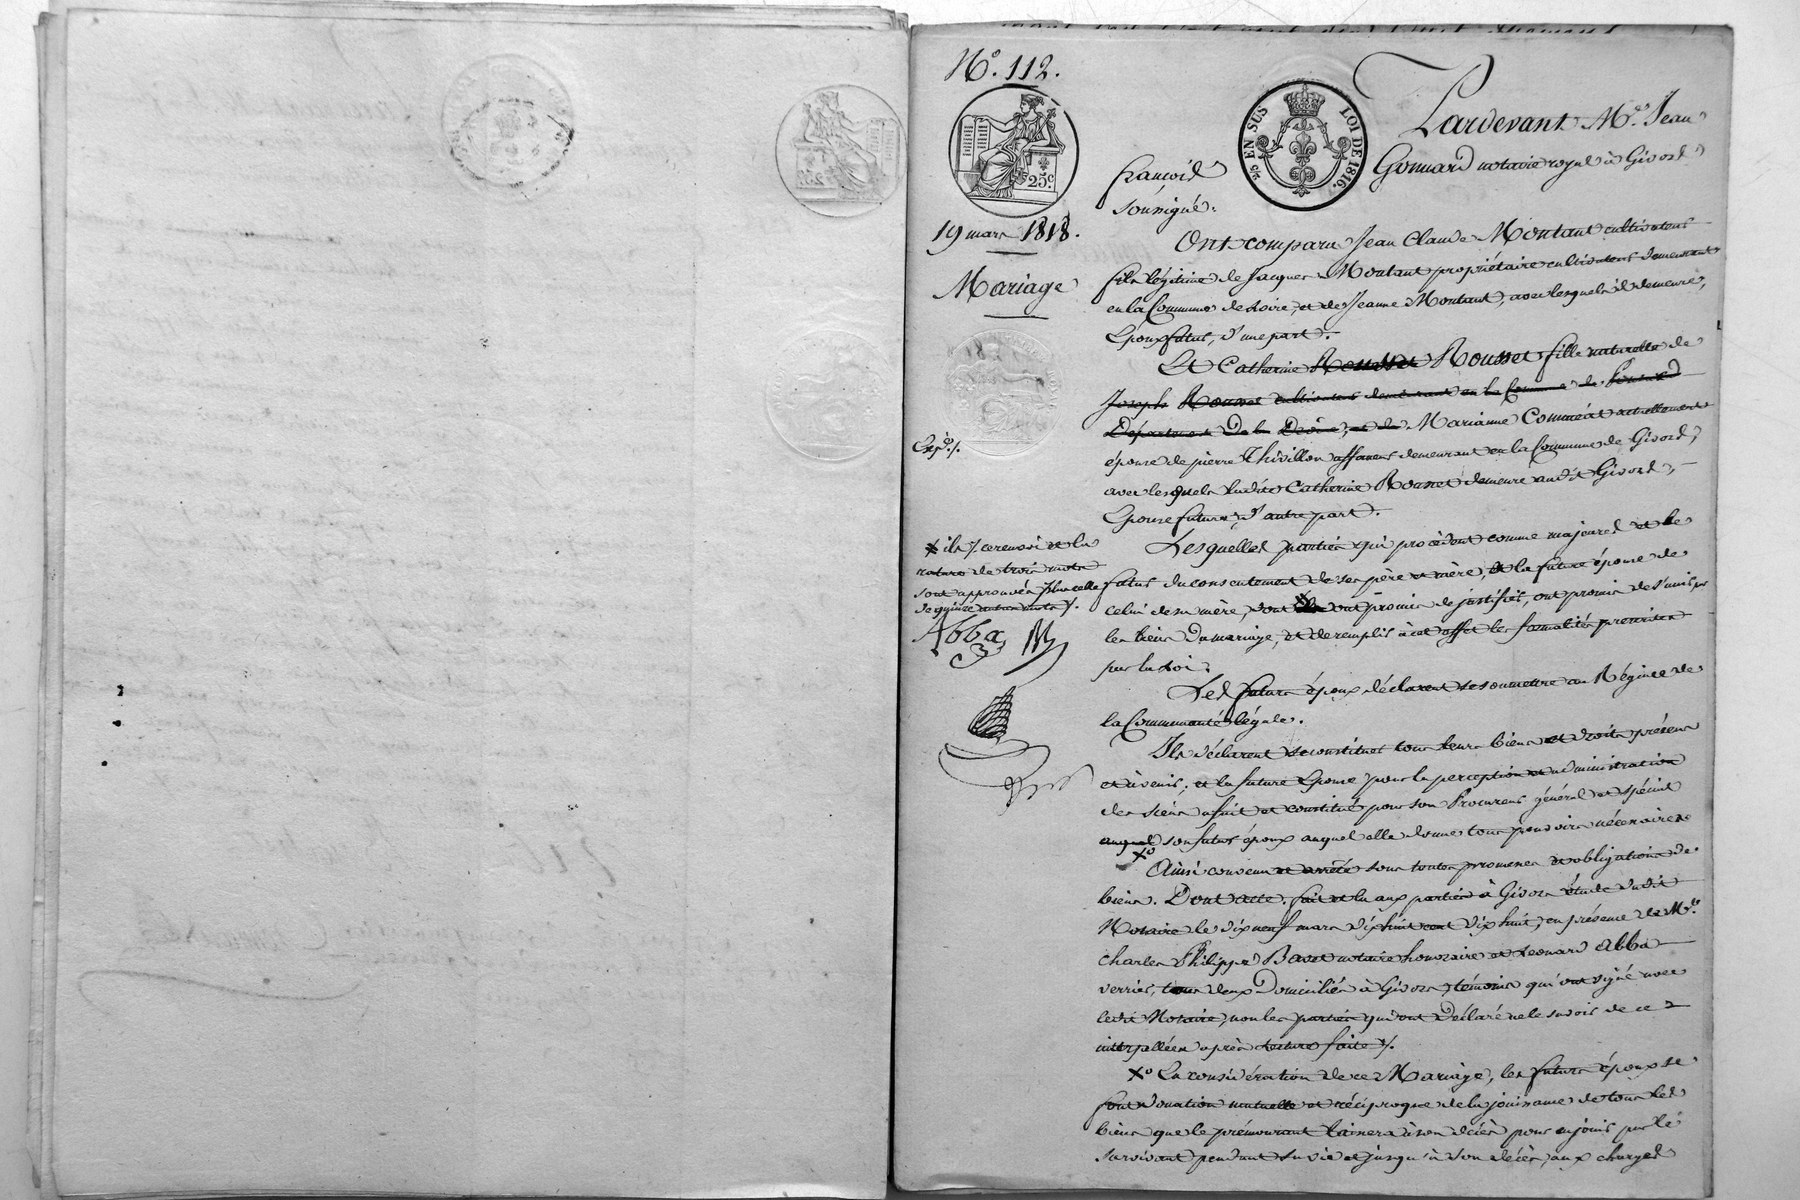 N.º 112.
25.c
EN SUS LOI DE 1816.
19 mars 1818.
Mariage
Exp.º /.
Pardevant M.e Jean
françois Gonnard notaire royal à Givors
soussigné.
Ont comparu Jean Claude Montant cultivateur
fils légitime de Jacques Montant propriétaire cultivateur demeurant
en la Commune de Loire, et de Jeanne Montant, avec lesquels il demeure,
Epoux futur, d'une part.
Et Catherine Rousset Rousset fille naturelle de
Joseph Rousset cultivateur demeurant en la Commune de
Département De la Drôme, et de Marianne Comméat actuellement
épouse de pierre Thivillon affaneur demeurant en la Commune de Givors,
avec lesquels ladite Catherine Rousset demeure audit Givors,
Epouse future, d'autre part.
Lesquelles parties qui procèdent comme majeures et le
futur du consentement de ses père et mère, et la future épouse de
celui de sa mère, dont ils ont promis de justifier, ont promis de s'unir par
les liens du mariage, et de remplir à cet effet les formalités prescrites
par la Loi.
ils /. ce renvoi et la
rature de trois mots
sont approuvés / plus celle
de quinze autres mots /.
Abba
Les futurs époux déclarent se soumettre au Régime de
la Communauté légale.
Ils déclarent se constituer tous leurs biens et droits présens
et à venir, et la future Epouse pour la perception et administration
des siens a fait et constitué pour son Procureur général et spécial
auquel son futur époux auquel elle donne tous pouvoirs nécessaires
Xº
Ainsi convenu et arrêté sous toutes promesses et obligations de
biens. Dont acte. fait et lu aux parties à Givors étude dudit
Notaire le dix neuf mars dix huit cent dix huit, en présence de M.rs
Charles Philippe Basset notaire honoraire et Leonard Abba
verrier, tous deux Domiciliés à Givors, témoins qui ont signé avec
ledit Notaire, non les parties qui ont Déclaré ne le savoir de ce
interpellées après lecture faite /.
Xº En considération de ce Mariage, les futurs époux se
font donation mutuelle et réciproque de la jouissance de tous les
biens que le prémourant laissera à son décès pour en jouir par le
survivant pendant sa vie et jusqu'à son décès, aux charges